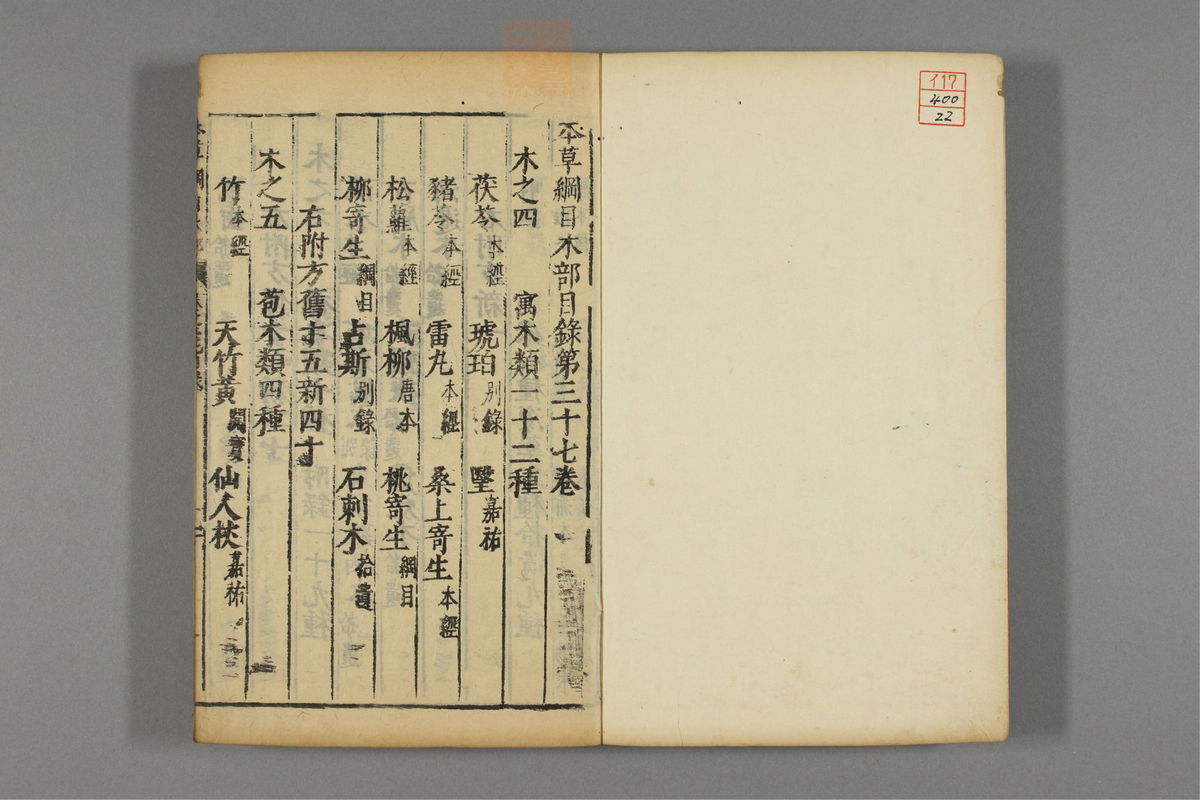 117
400
22
本草綱目木部目錄第三十七卷
木之四 寓木類一十二種
茯苓本經 琥珀別錄 瑿嘉祐
豬苓本經 雷丸本經 桑上寄生本經
松蘿本經 楓柳唐本 桃寄生綱目
柳寄生綱目 占斯別錄 石刺木拾遺
右附方舊十五新四十
木之五 苞木類四種
竹本經 天竹黃開寶 仙人杖嘉祐